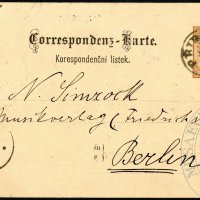 Correspondenz-Karte.
Korespondenční lístek.
N. Simrock
Musikverlag (Friedrichs
in
v
Berlin